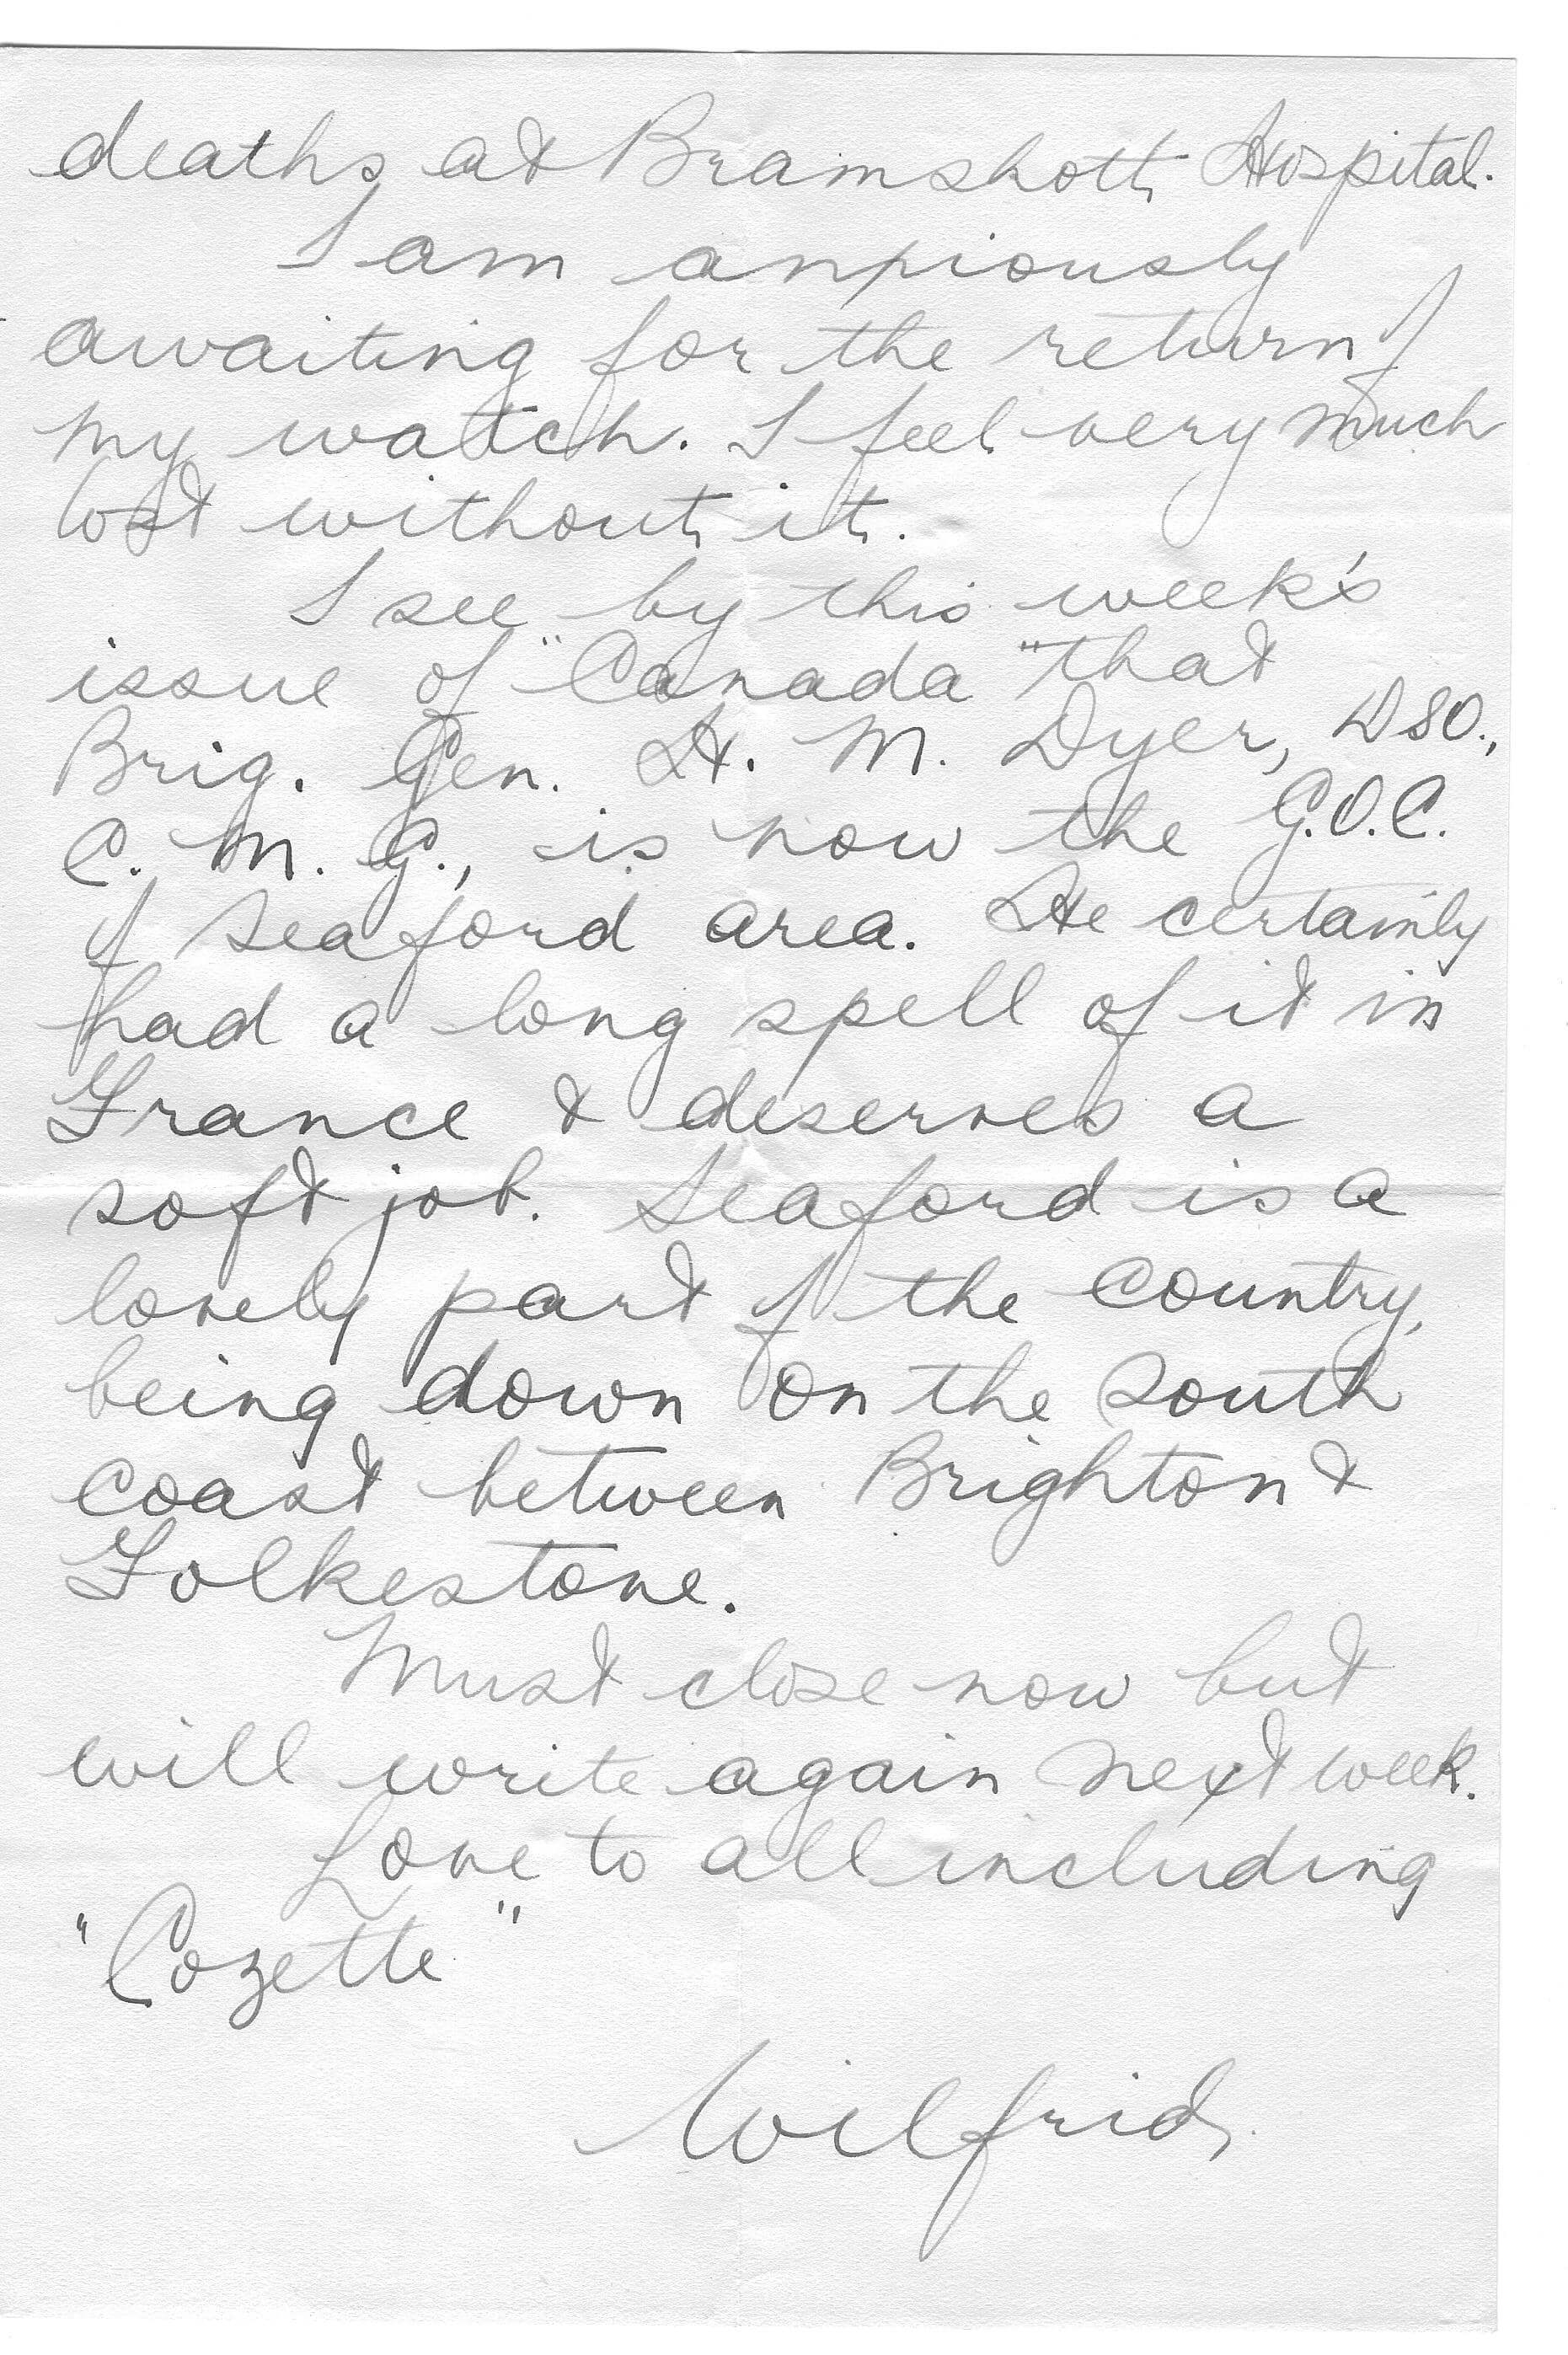 deaths at Bramshott Hospital.
I am anxiously
awaiting for the return of
my watch. I feel very much
lost without it.
I see by this week's
issue of "Canada" that
Brig. Gen. H. M. Dyer, DSO.,
C. M. G., is now the G.O.C.
of Seaford area. He certainly
had a long spell of it in
France & deserves a
soft job. Seaford is a
lovely part of the country,
being down on the south
coast between Brighton &
Folkestone.
Must close now but
will write again next week.
Love to all including
"Cozette"
Wilfrid